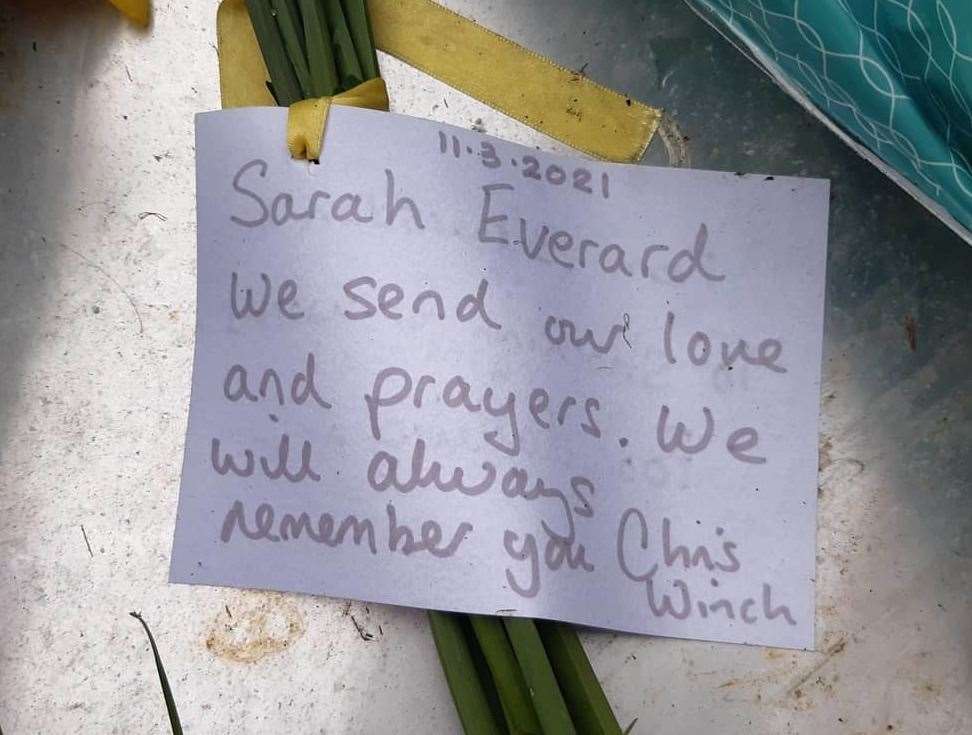 11.3.2021
Sarah Everard
We send our love
and prayers. We
will always
remember you Chris
Winch